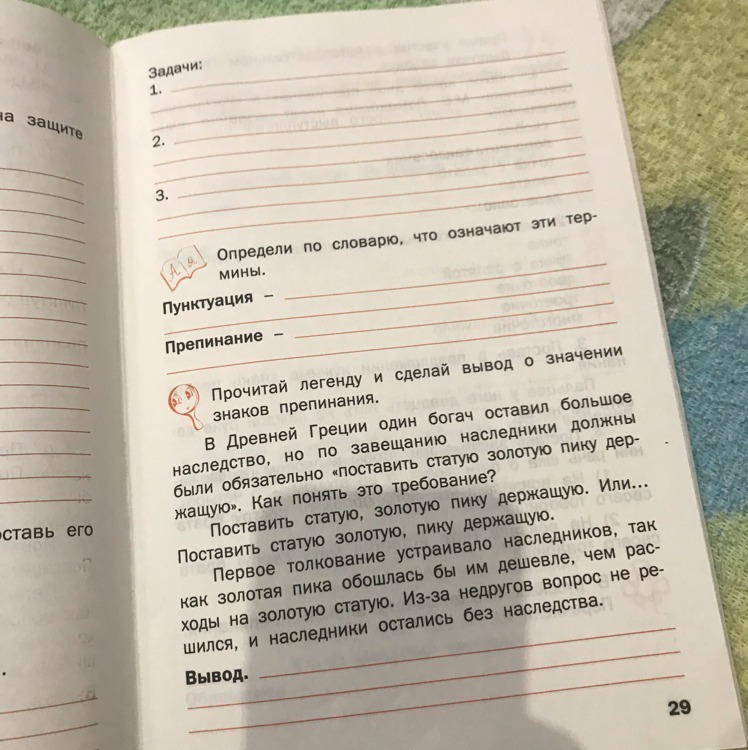 на защите
оставь его
.
Задачи:
1.
2.
3.
А Я
Определи по словарю, что означают эти тер-
мины.
Пунктуация –
Препинание –
Прочитай легенду и сделай вывод о значении
знаков препинания.
В Древней Греции один богач оставил большое
наследство, но по завещанию наследники должны
были обязательно «поставить статую золотую пику дер-
жащую». Как понять это требование?
Поставить статую, золотую пику держащую. Или...
Поставить статую золотую, пику держащую.
Первое толкование устраивало наследников, так
как золотая пика обошлась бы им дешевле, чем рас-
ходы на золотую статую. Из-за недругов вопрос не ре-
шился, и наследники остались без наследства.
Вывод.
29